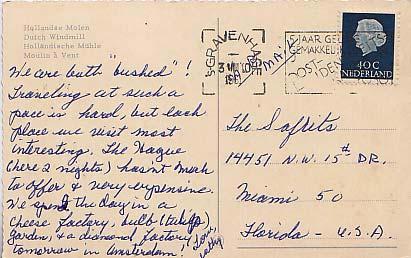 Hollandse Molen
Dutch Windmill
Holländische Mühle
Moulin à Vent
'S-GRAVENHAGE
40C
NEDERLAND
We are both bushed"!
Traveling at such a
pace is hard, but each
place we visit most
interesting. The Hague
(here 2 nights) hasn't much
to offer & very expensive.
We spend the day in a
cheese factory, bulb (tulip
garden, & a diamond factory,
tomorrow in Amsterdam!
Love,
The Saffits
14451 N.W. 15th DR.
Miami 50
Florida - U.S.A.